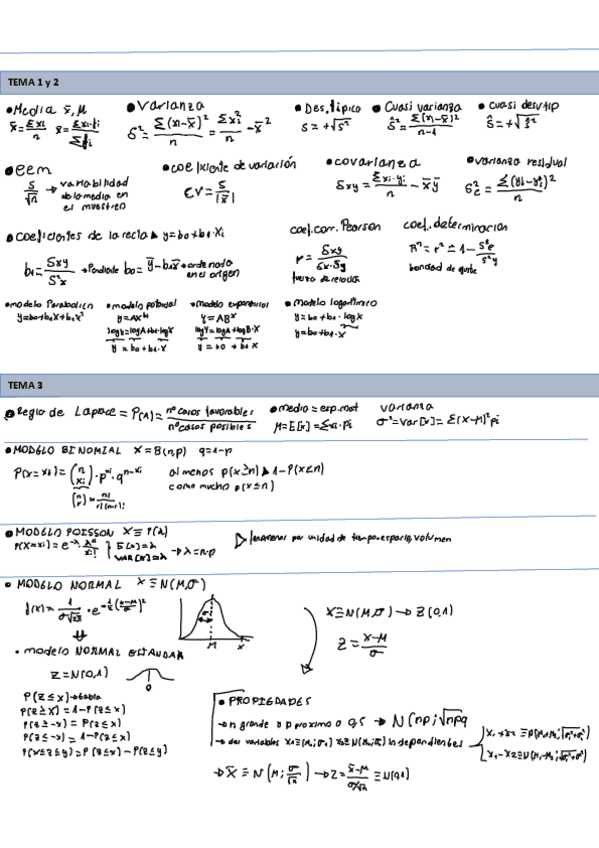 TEMA 1 y 2
• Media x̄, μ
x̄ = Σxi / n   x̄ = Σxi·fi / Σfi
• Varianza
S² = Σ(xi-x̄)² / n = Σxi² / n - x̄²
• Des. típica
s = +√s²
• Cuasi varianza
ŝ² = Σ(xi-x̄)² / n-1
• cuasi desv tip
ŝ = +√ŝ²
• eem
s / √n → variabilidad de la media en el muestreo
• coeficiente de variación
CV = s / |x̄|
• covarianza
Sxy = Σxi·yi / n - x̄ȳ
• varianza residual
• coeficientes de la recta ▸ y = b0+b1·xi
b1 = Sxy / S²x → Pendiente   b0 = ȳ - b1x̄ → ordenada en el origen
coef. corr. Pearson
r = Sxy / Sx·Sy
fuerza de relación
coef. determinacion
bondad de ajuste
• modelo Parabolico
y=b0+b1x+b2x²
• modelo potencial
y=AX^b1
logy=logA+b1·logx
y = b0+b1·x
• modelo exponencial
y=AB^x
logy=logA+logB·x
y = b0 + b1 x
• modelo logarítmico
y = b0 + b1·logx
y=b0+b1·x
TEMA 3
• Regla de Laplace = P(A) = nº casos favorables / nº casos posibles
• media = esp. mat
μ=E[x]=Σxi·pi
varianza
σ²=Var[x]=Σ(x-μ)²pi
• MODELO BINOMIAL X≡B(n,p) q=1-p
P(x=xi)=(n xi)·p^xi·q^n-xi
al menos p(x≥n) ▸ 1-P(x<n)
como mucho p(x≤n)
• MODELO POISSON X≡P(λ)
P(X=xi)=e^-λ λ^xi / xi!   E[x]=λ   VAR[x]=λ → λ=n·p
▷ fenomenos por unidad de tiempo, espacio, volumen
• MODELO NORMAL X≡N(μ,σ)
f(x)= 1 / σ√2π · e^-½(x-μ / σ)²
σ
μ   x
X≡N(μ,σ) → Z(0,1)
Z = x-μ / σ
• modelo NORMAL ESTANDAR
Z≡N(0,1)
0
P(Z≤x)→tabla
P(Z≥x)=1-P(Z≤x)
P(Z≥-x)=P(Z≤x)
P(Z≤-x)=1-P(Z≤x)
P(x≤Z≤y)=P(Z≤x)-P(Z≤y)
• PROPIEDADES
→ n grande y p proximo a 0,5 → N(np;√npq
→ dos variables X1≡(μ1;σ1) X2≡N(μ2;σ2) independientes
x1+x2≡N(μ1+μ2;√σ1²+σ2²)
x1-x2≡N(μ1-μ2;√σ1²+σ2²)
→ X̄≡N(μ; σ/√n) → Z = x̄-μ / σ/√n ≡N(0,1)